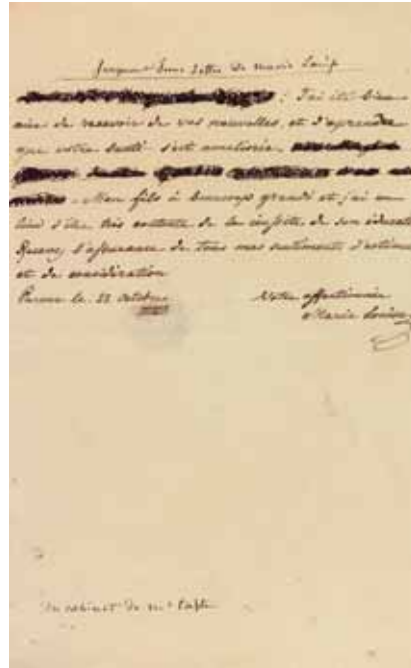 fragment d'une lettre de marie Louise
: J'ai été bien
aise de recevoir de vos nouvelles, et d'aprendre
que votre santé s'est ameliorée.
. Mon fils à beaucoup grandi et j'ai eu
lieu d'être très contente de la de son éducat
Recevez l'assurance de tous mes sentimens d'estime
et de considération
Parme le 22 octobre
Votre affectionnée
Marie Louise
du cabinet de mr